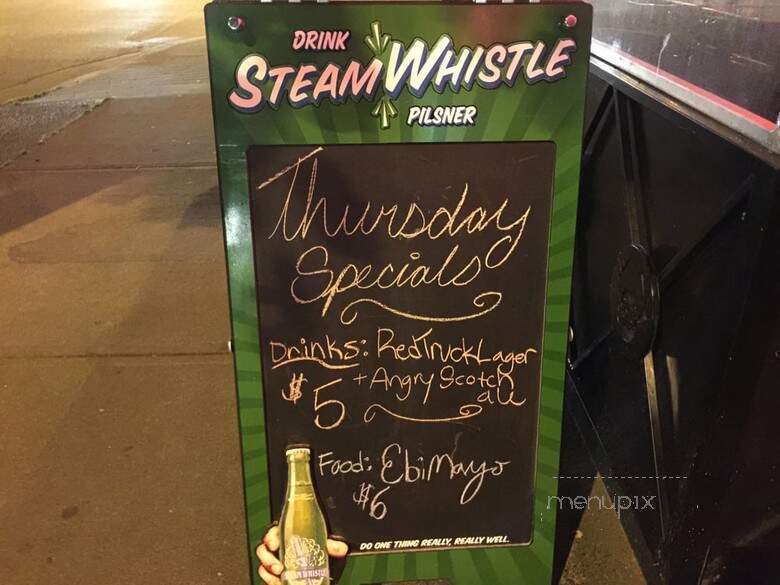 DRINK
STEAM WHISTLE
PILSNER
Thursday
Specials
Drinks: Red Truck Lager
$5 + Angry Scotch
ale
Food: Ebi Mayo
$6
DO ONE THING REALLY, REALLY WELL.
STEAM WHISTLE
menupix